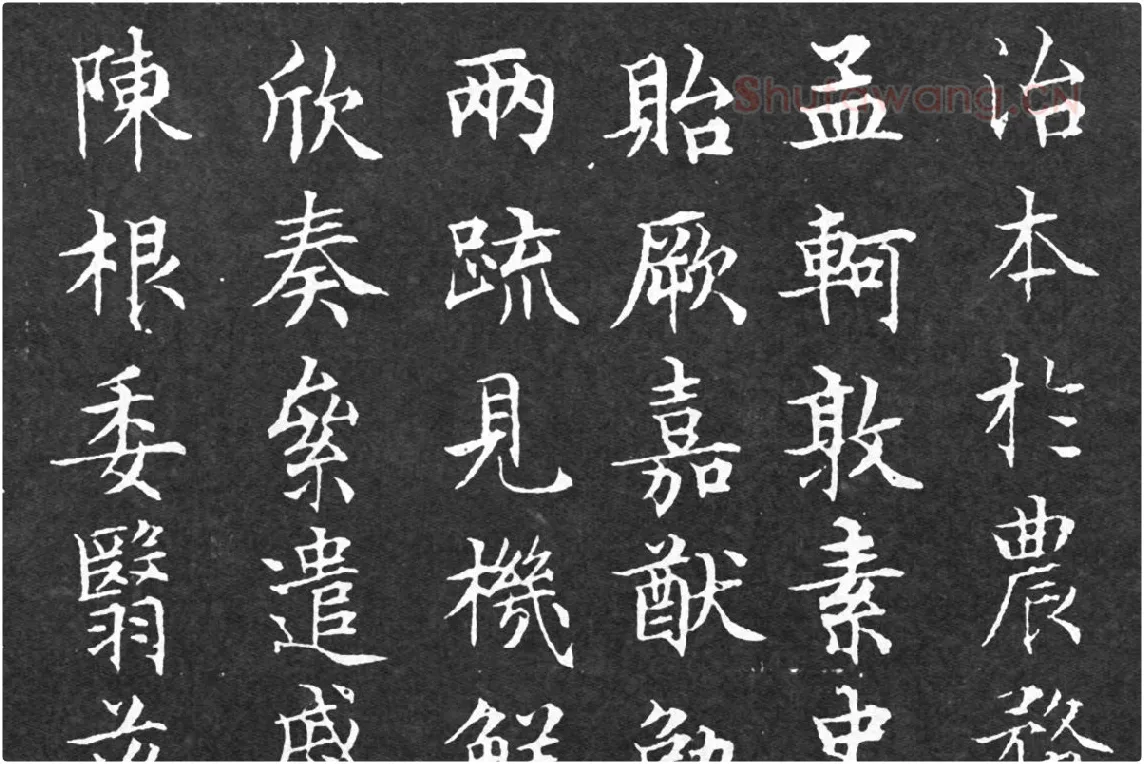 治本於農務
孟軻敦素史
貽厥嘉猷勉
兩疏見機解
欣奏累遣慼
陳根委翳落
Shufawang.CN